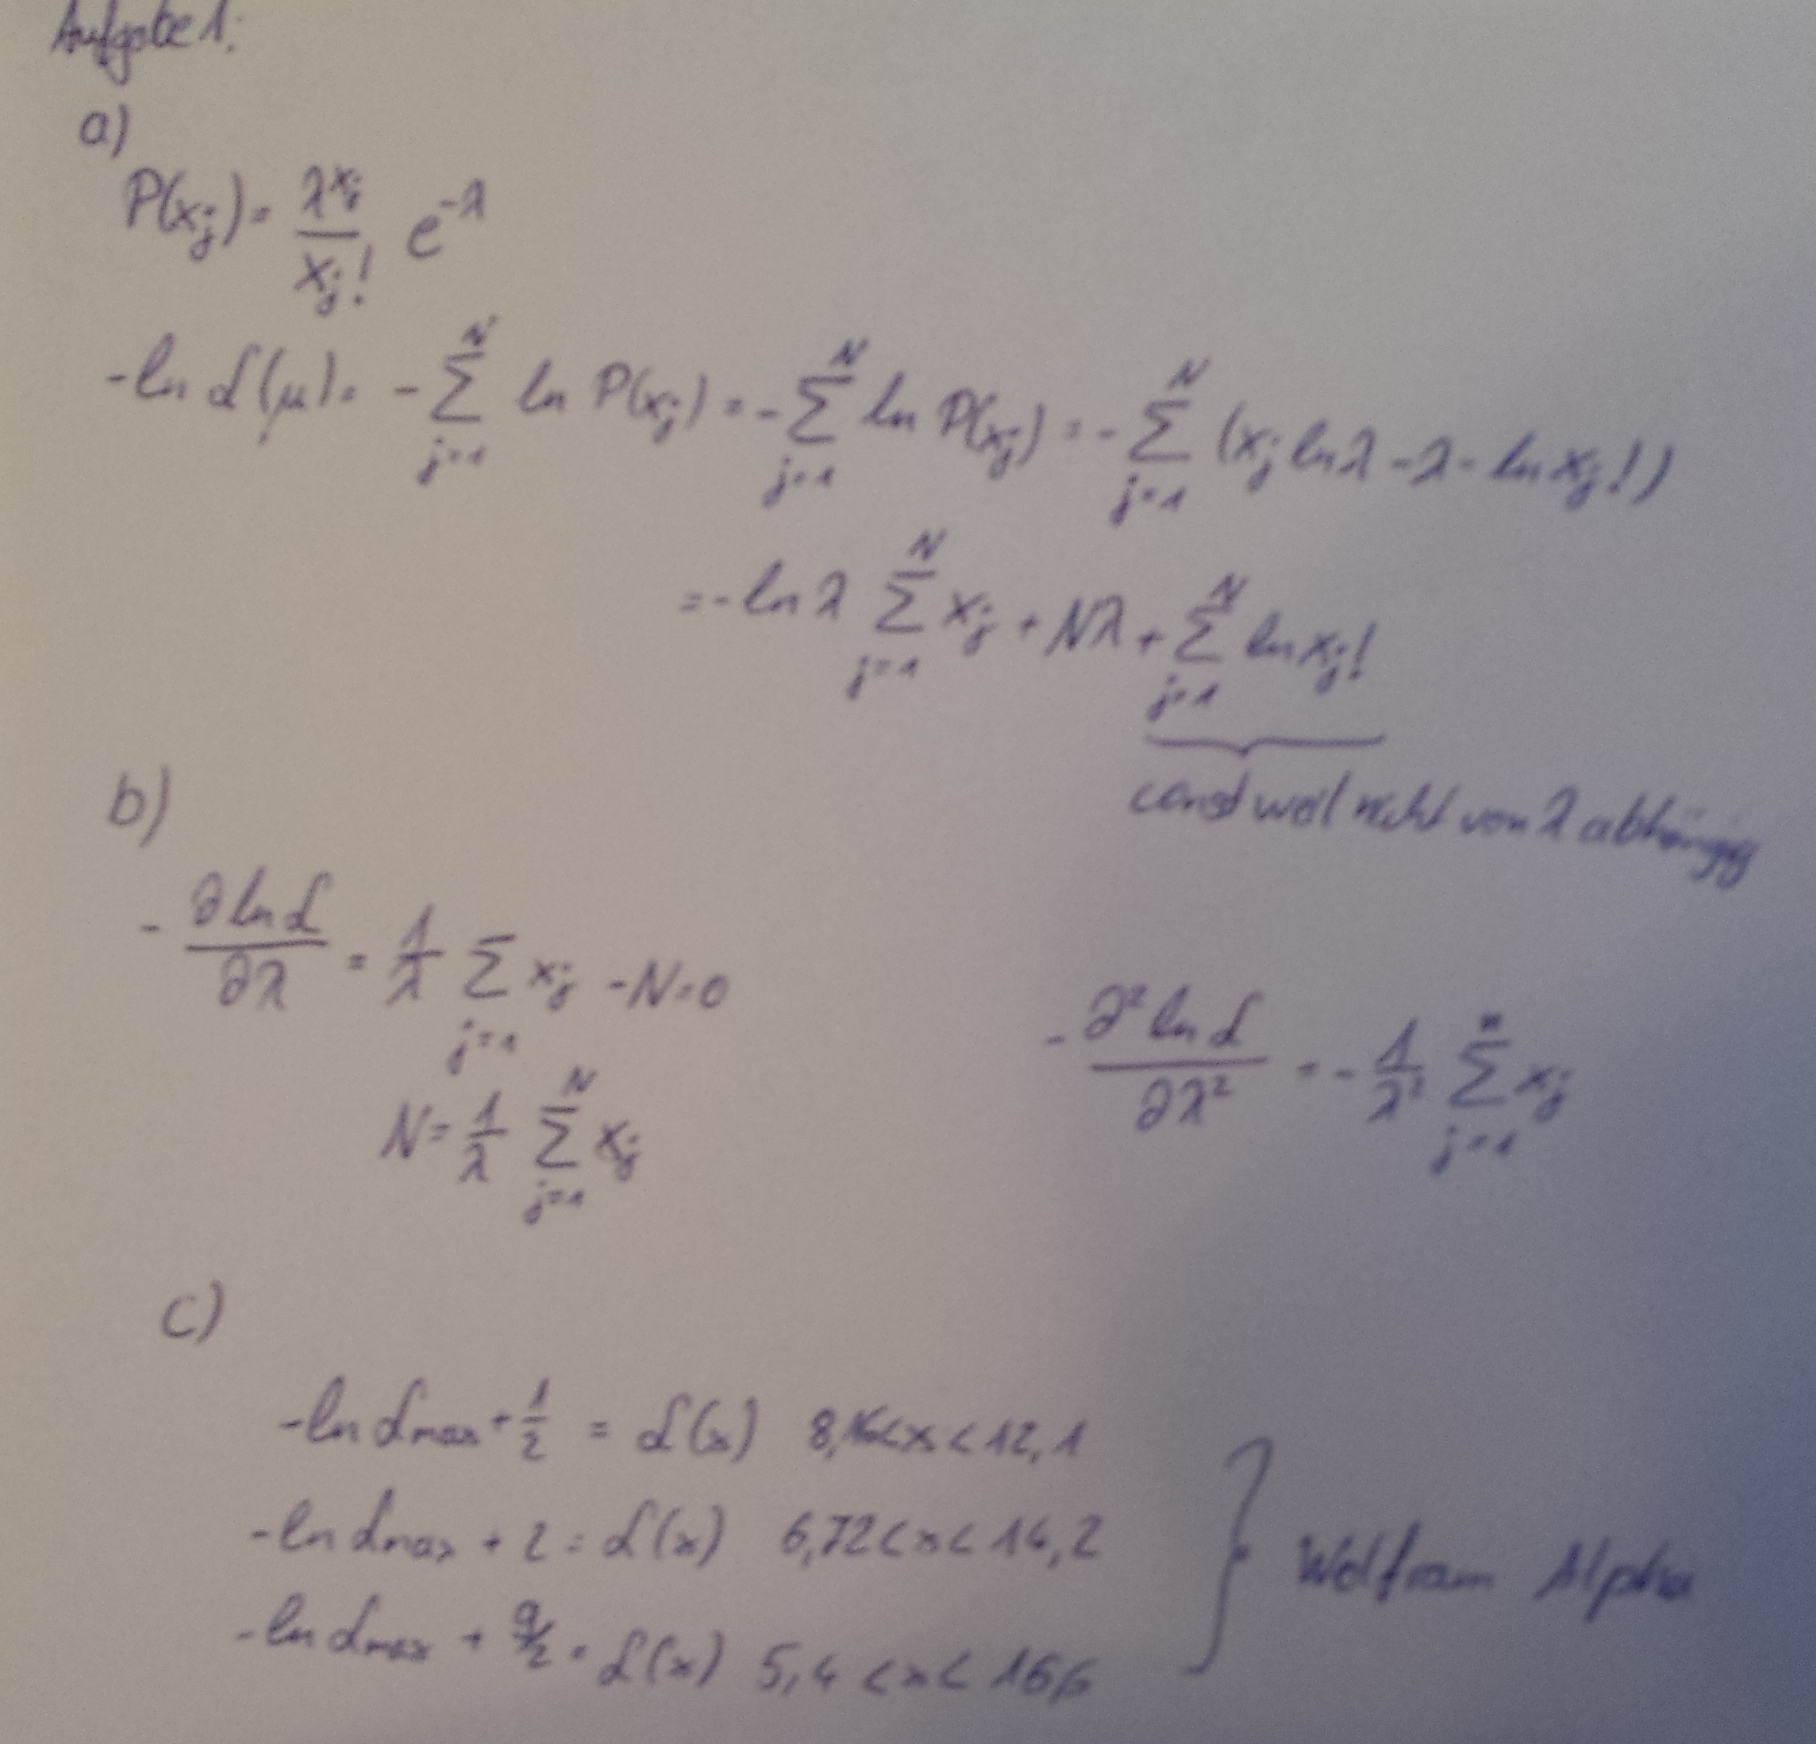 Aufgabe 1:
a)
P(xⱼ) = λ^xⱼ / xⱼ! e^-λ
-ln ℒ(μ) = - ∑_{j=1}^{N} ln P(xⱼ) = - ∑_{j=1}^{N} ln P(xⱼ) = - ∑_{j=1}^{N} (xⱼ ln λ - λ - ln xⱼ!)
= - ln λ ∑_{j=1}^{N} xⱼ + Nλ + ∑_{j=1}^{N} ln xⱼ!
const weil nicht von λ abhängig
b)
- ∂ ln ℒ / ∂λ = 1/λ ∑_{j=1} xⱼ - N = 0
- ∂² ln ℒ / ∂λ² = - 1/λ² ∑_{j=1}^{n} xⱼ
N = 1/λ ∑_{j=1}^{N} xⱼ
c)
-ln ℒmax + 1/2 = ℒ(x) 8,16 < x < 12,1
-ln ℒmax + 2 = ℒ(x) 6,72 < x < 14,2
-ln ℒmax + 9/2 = ℒ(x) 5,4 < x < 16,6
Wolfram Alpha